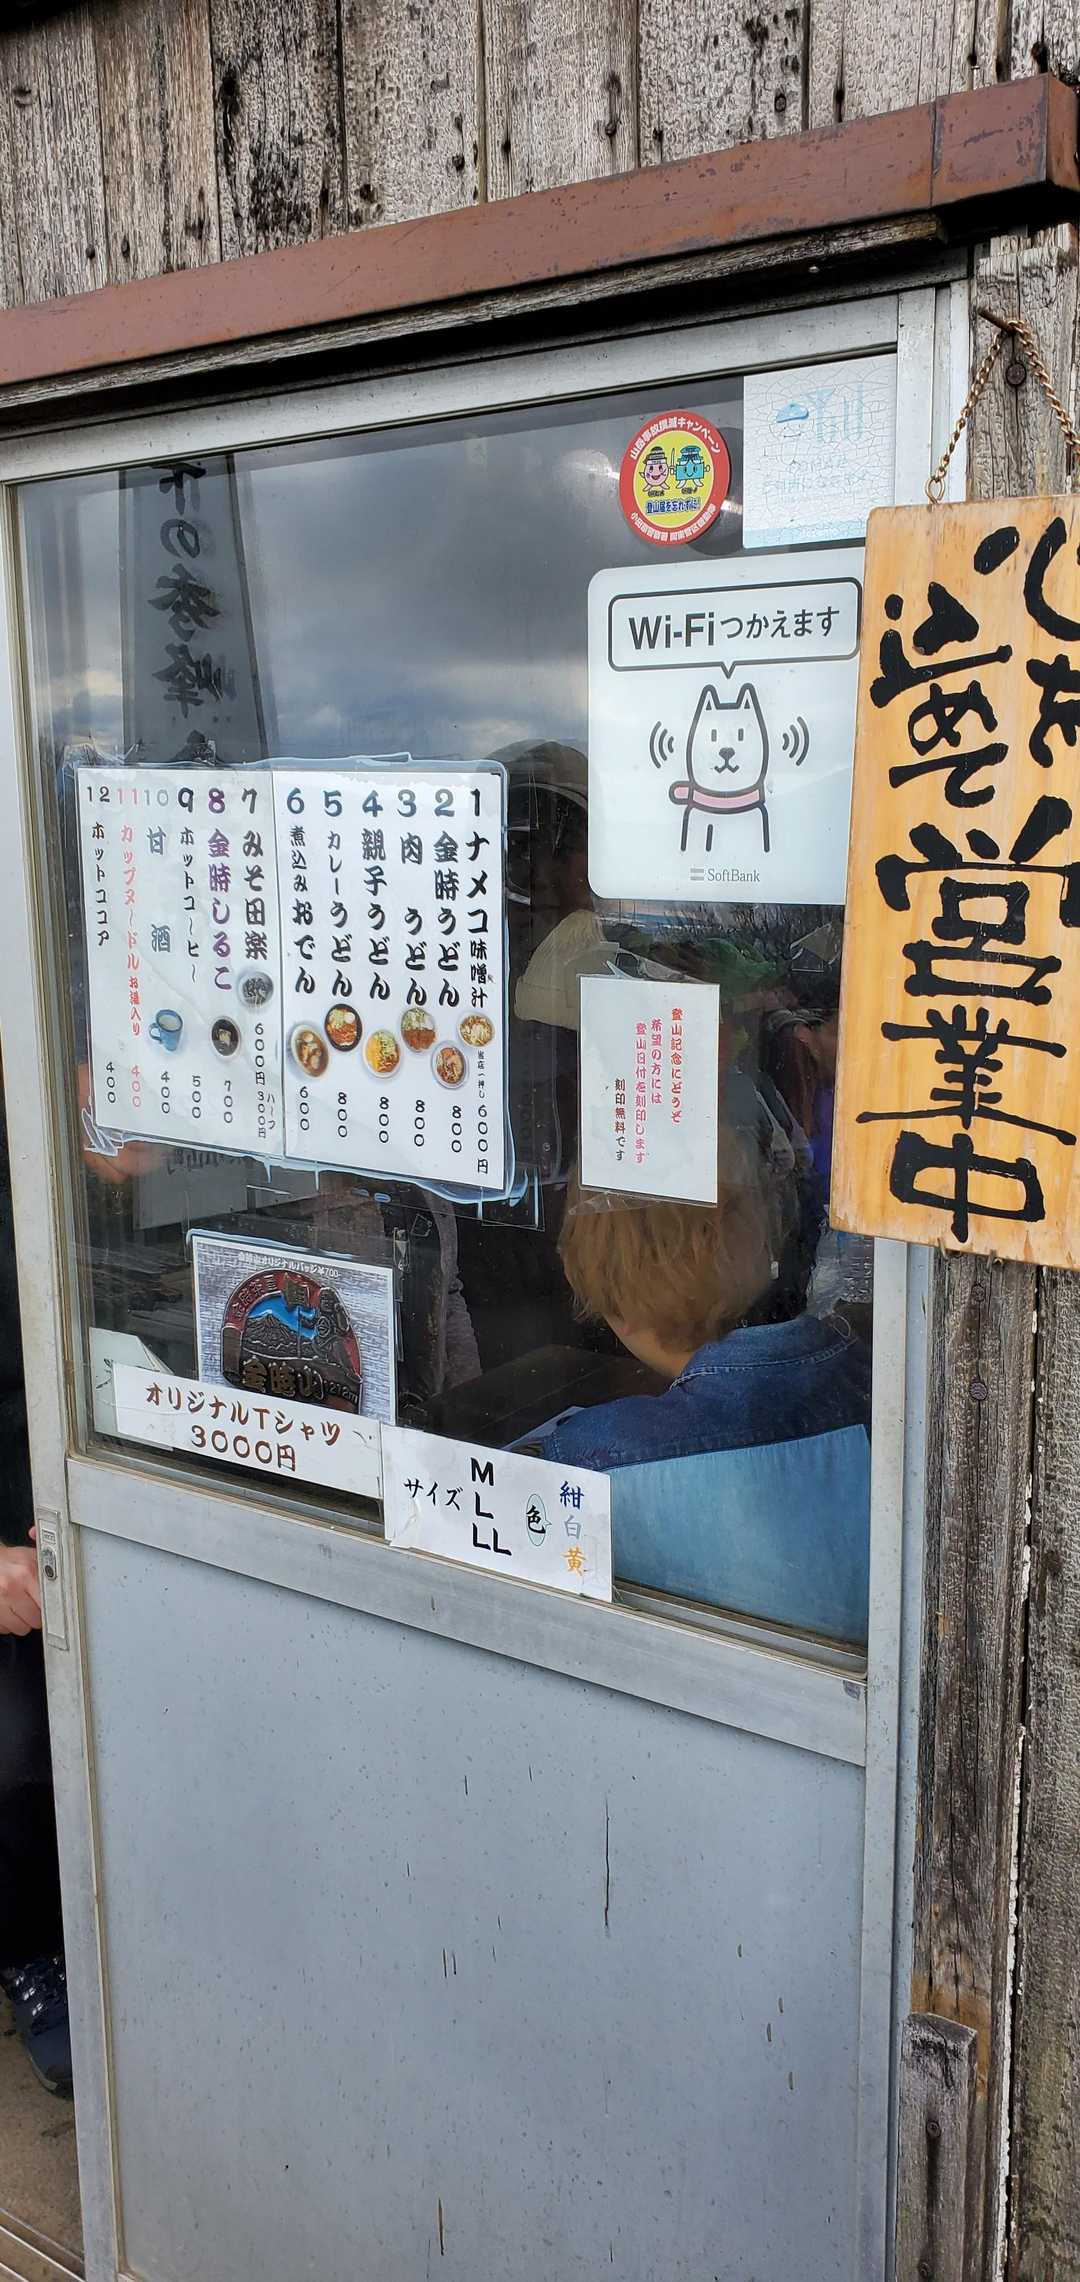 山岳事故撲滅キャンペーン
登山届を忘れずに!
Wi-Fiつかえます
SoftBank
心を
込めて
営業中
1 ナメコ味噌汁 当店一押し 600円
2 金時うどん 800
3 肉うどん 800
4 親子うどん 800
5 カレーうどん 800
6 煮込みおでん 600
7 みそ田楽 600円 ハーフ 300円
8 金時しるこ 700
9 ホットコ〜ヒ〜 500
10 甘酒 400
11 カップヌ〜ドルお湯入り 400
12 ホットココア 400
登山記念にどうぞ
希望の方には
登山日付を刻印します
刻印無料です
金時山オリジナルバッジ¥700-
金時山
オリジナルTシャツ
3000円
サイズ
M
L
LL
色
紺
白
黄